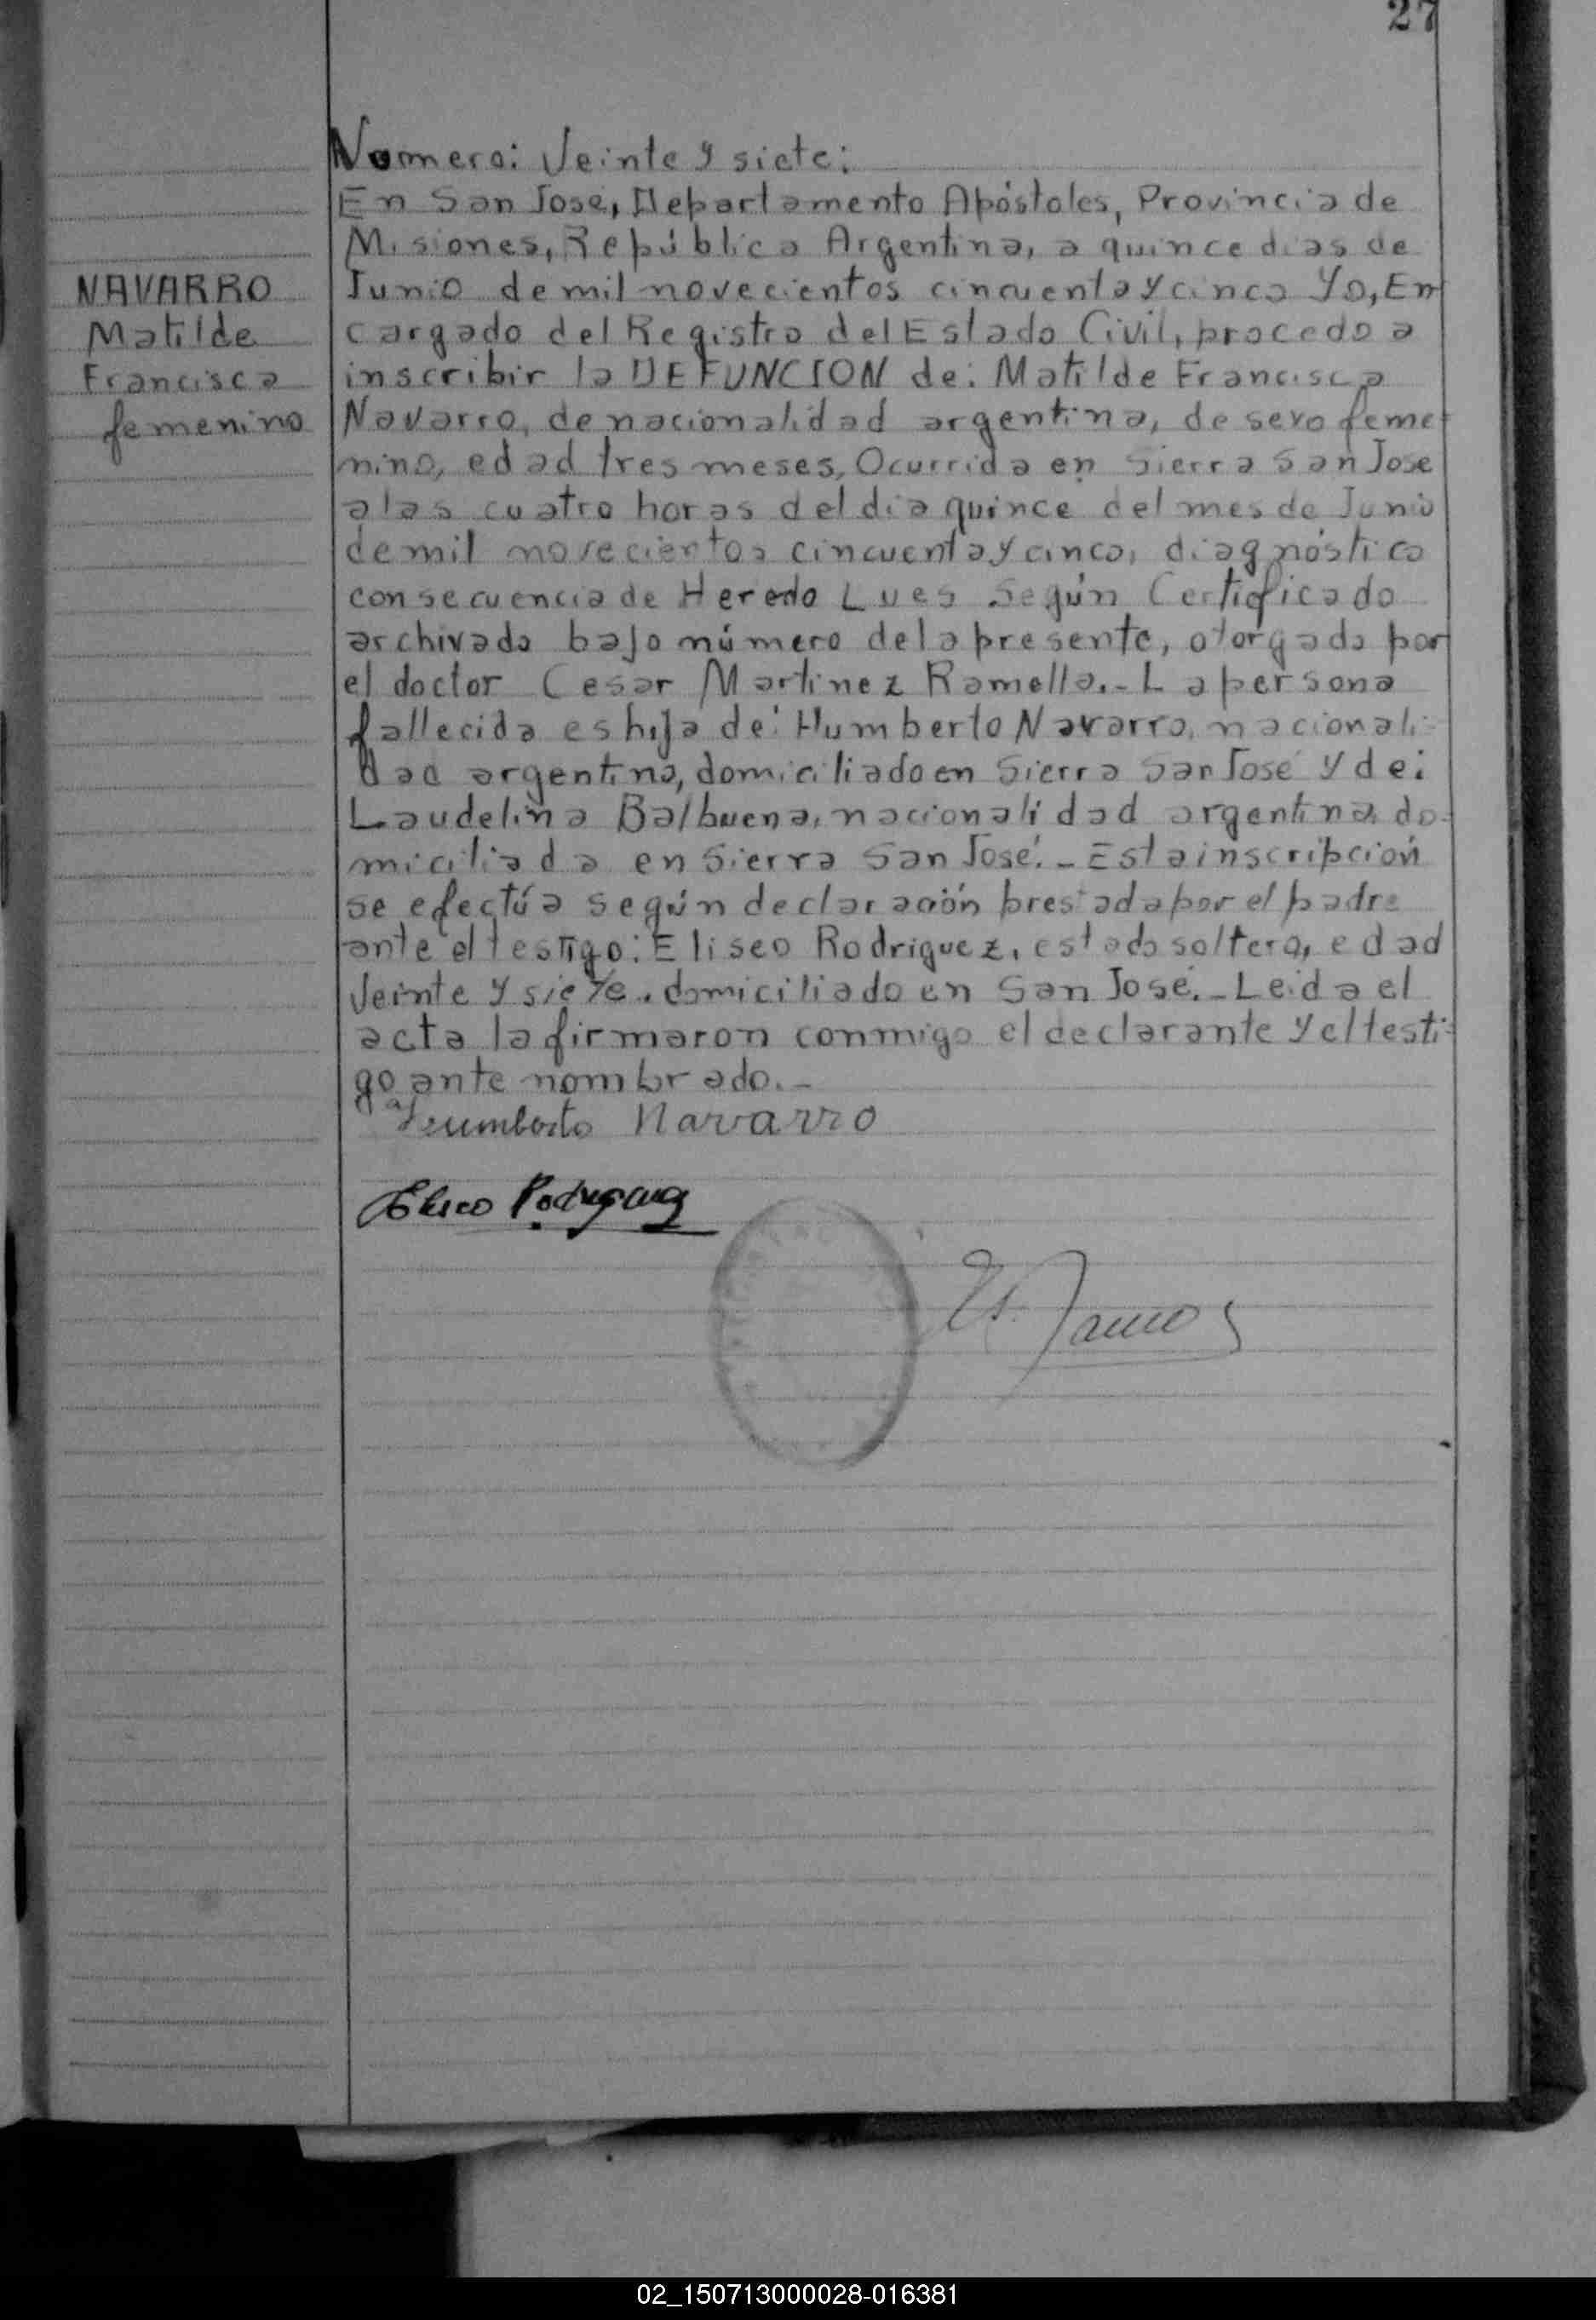 27
Numero: Veinte y siete:
En San José, Departamento Apóstoles, Provincia de
Misiones, República Argentina, a quince dias de
NAVARRO
Junio de mil novecientos cincuenta y cinco Yo, En
Matilde
cargado del Registro del Estado Civil, procedo a
Francisca
inscribir la DEFUNCION de: Matilde Francisca
femenino
Navarro, de nacionalidad argentina, de sexo feme-
nino, edad tres meses, Ocurrida en Sierra San Jose
a las cuatro horas del dia quince del mes de Junio
de mil novecientos cincuenta y cinco, diagnóstico
consecuencia de Heredo Lues Según Certificado
archivado bajo número de la presente, otorgado por
el doctor Cesar Martinez Ramella.- La persona
fallecida es hija de: Humberto Navarro, nacionali-
dad argentina, domiciliado en Sierra San José y de:
Laudelina Balbuena, nacionalidad argentina, do-
miciliada en Sierra San José.- Esta inscripción
se efectúa según declaración prestada por el padre
ante el testigo: Eliseo Rodriguez, estado soltero, edad
Veinte y siete, domiciliado en San José.- Leida el
acta la firmaron conmigo el declarante y el testi-
go ante nombrado.-
Humberto Navarro
Eliseo Rodriguez
02_150713000028-016381